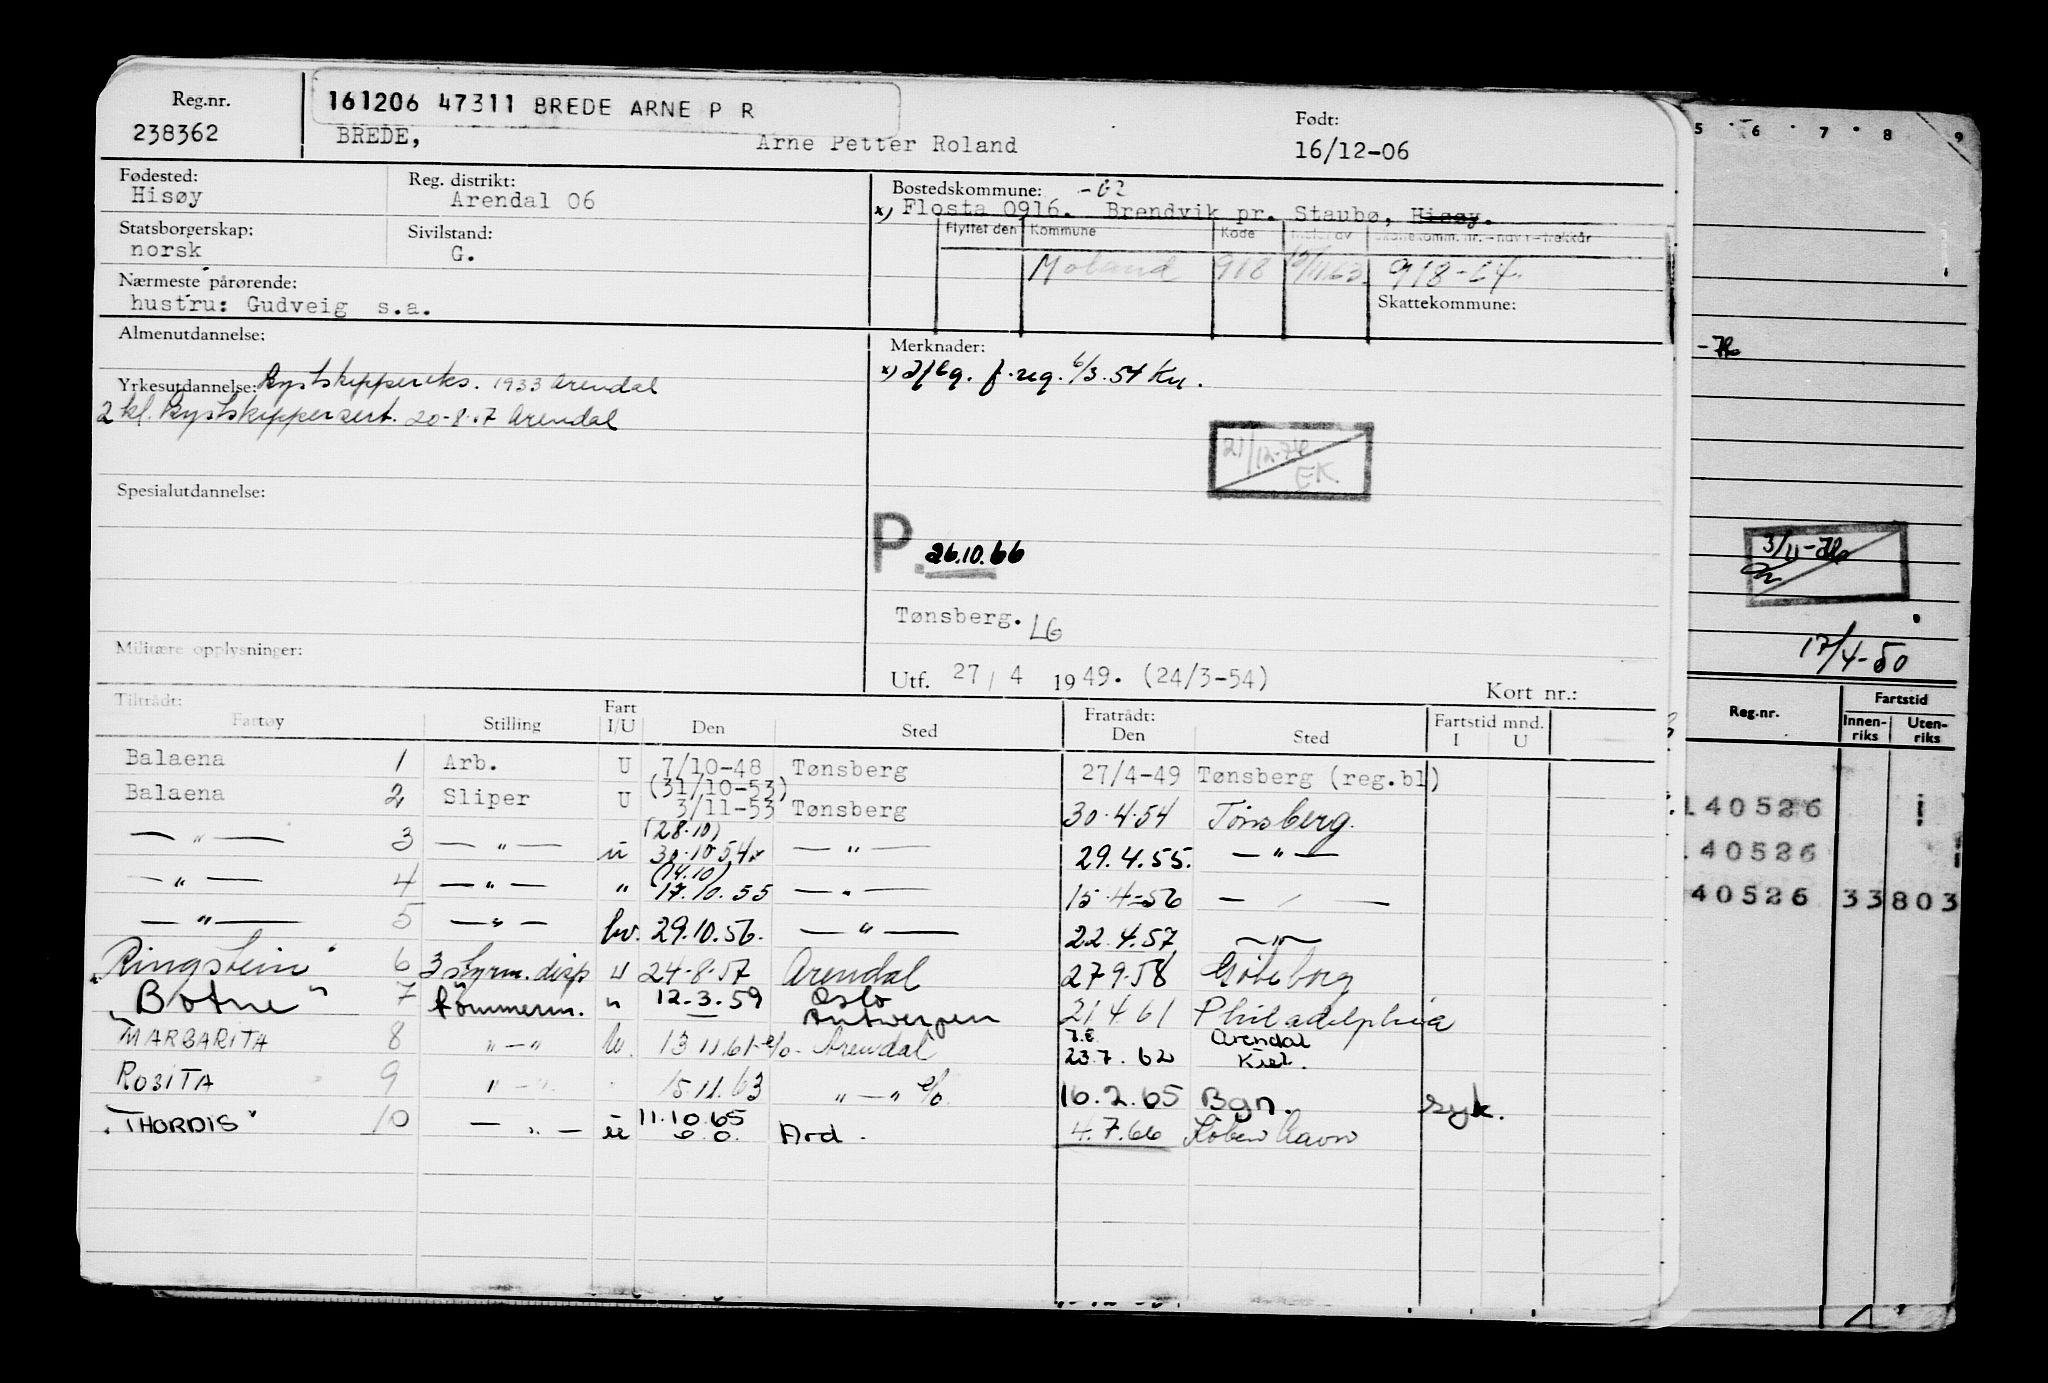 Reg.nr.
238362
161206 47311 BREDE ARNE P R
BREDE, Arne Petter Roland
Født:
16/12-06
Fødested:
Hisøy
Reg. distrikt:
Arendal 06
Bostedskommune:
x) Flosta 0916. Brendvik pr. Staubø, Hisøy.
Statsborgerskap:
norsk
Sivilstand:
G.
Flyttet den Kommune Kode
Moland 918 918-64
Skattekommune:
Nærmeste pårørende:
hustru: Gudveig s.a.
Almenutdannelse:
Yrkesutdannelse: Kystskippereks. 1933 Arendal
2 kl. Kystskippersert. 20-8.57 Arendal
Merknader:
x) 6/3.54
21/12-76
EK
Spesialutdannelse:
P. 26.10.66
Tønsberg. LG
Militære opplysninger:
Utf. 27/4 1949. (24/3-54)
Kort nr.:
Tiltrådt: Fart Fratrådt: Fartstid mnd.
Fartøy Stilling I/U Den Sted Den Sted I U
Balaena 1 Arb. U 7/10-48 Tønsberg 27/4-49 Tønsberg (reg.bl)
Balaena 2 Sliper U (31/10-53) 3/11-53 Tønsberg 30.4.54 Tønsberg.
— " — 3 — " — u (28.10) 30.10.54 — " — 29.4.55. — " —
— " — 4 — " — " (14.10) 17.10.55 — " — 15.4-56 — " —
— " — 5 — " — hv. 29.10.56. — " — 22.4.57 — " —
"Ringstein" 6 3 styrm. disp u 24-8-57 Arendal 27 9.58 Gøteborg
"Botne" 7 tømmerm. " 12-3.59 Oslo Antwerpen 21 4 61 Philadelphia
MARGARITA 8 " — " 13 11.61 e/o. Arendal 23.7.62 Arendal Kiel.
ROSITA 9 " — " 15.11.63 " — " e/o. 16.2.65 Bgn. syk.
"THORDIS" 10 — " — u 11.10.65 e.o. Ard. 4.7.66 København
5 6 7 8 9
3/11-76
17/4-50
Reg.nr. Fartstid
Innenriks Utenriks
140526
140526
40526 33 803